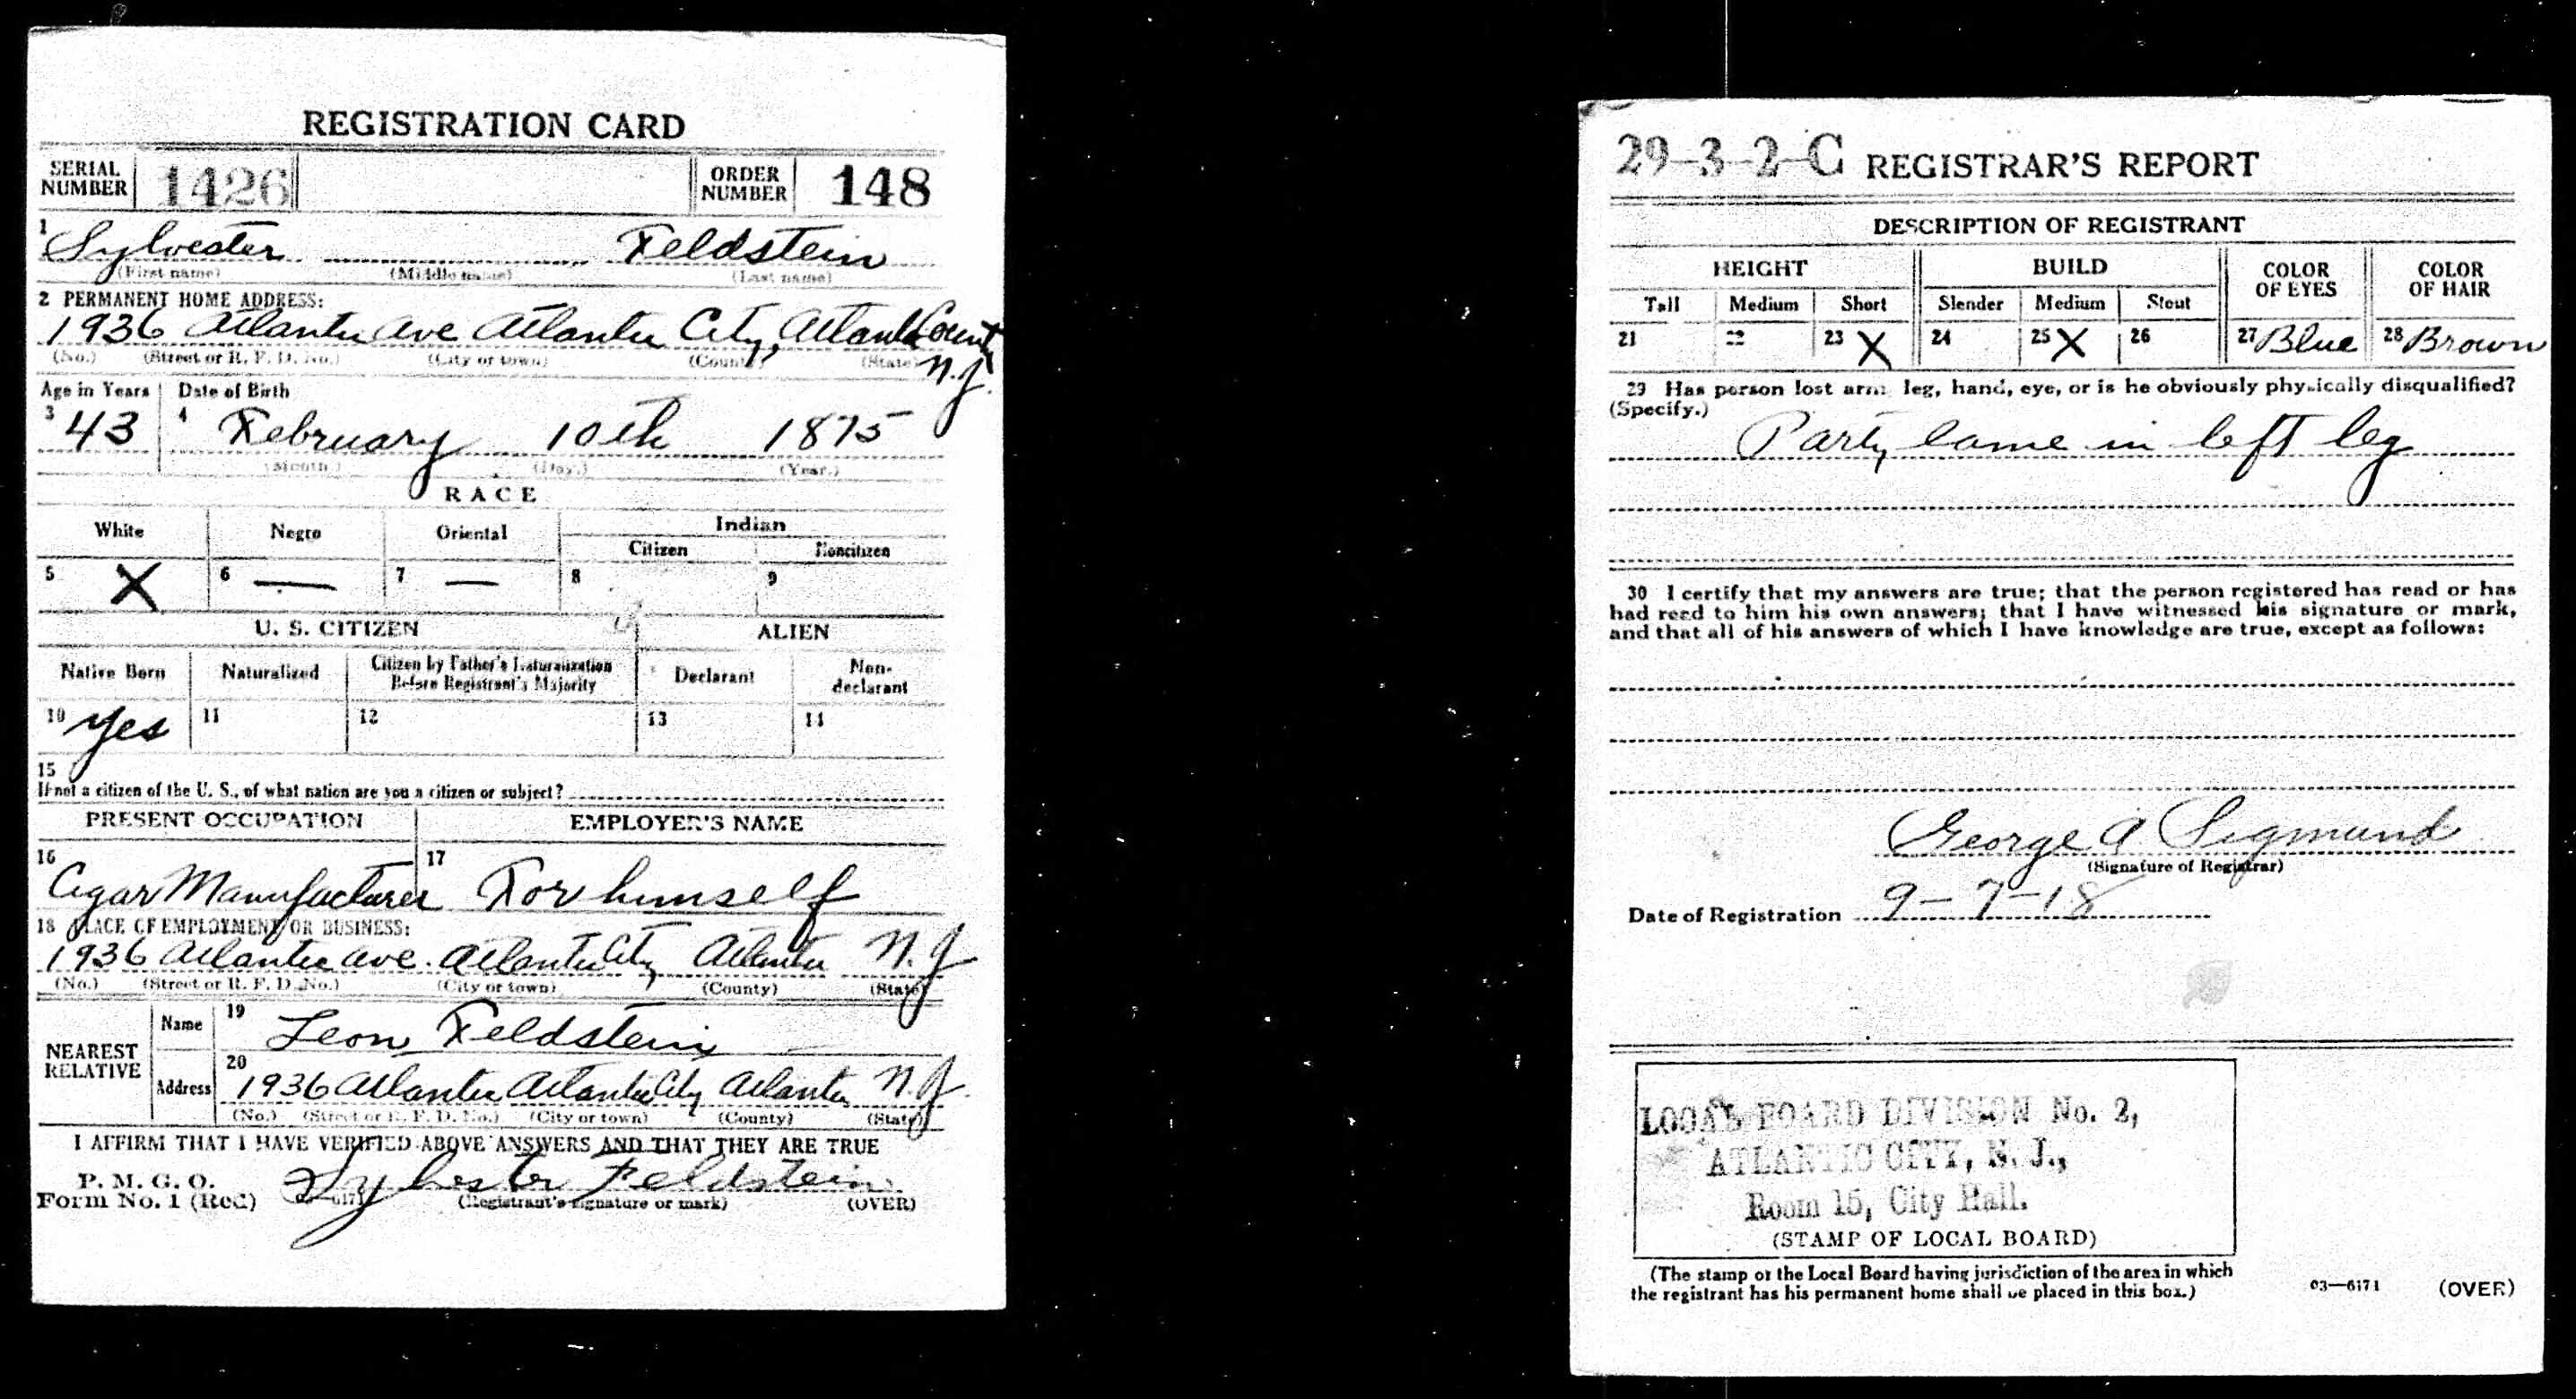 REGISTRATION CARD
SERIAL NUMBER 1426 ORDER NUMBER 148
1 Sylvester Feldstein
(First name) (Middle name) (Last name)
2 PERMANENT HOME ADDRESS:
1936 Atlantic Ave Atlantic City, Atlantic County
N.J.
(No.) (Street or R. F. D. No.) (City or town) (County) (State)
Age in Years Date of Birth
3 43 4 February 10th 1875
(Month.) (Day.) (Year.)
RACE
White Negro Oriental Indian
Citizen Noncitizen
5 X 6 — 7 — 8 9
U. S. CITIZEN ALIEN
Native Born Naturalized Citizen by Father's Naturalization Before Registrant's Majority Declarant Non-declarant
10 Yes 11 12 13 14
15
If not a citizen of the U. S., of what nation are you a citizen or subject?
PRESENT OCCUPATION EMPLOYER'S NAME
16 Cigar Manufacturer 17 For himself
18 PLACE OF EMPLOYMENT OR BUSINESS:
1936 Atlantic Ave. Atlantic City Atlantic N.J
(No.) (Street or R. F. D. No.) (City or town) (County) (State)
NEAREST RELATIVE
Name 19 Leon Feldstein
Address 20 1936 Atlantic Atlantic City Atlantic N.J.
(No.) (Street or R. F. D. No.) (City or town) (County) (State)
I AFFIRM THAT I HAVE VERIFIED ABOVE ANSWERS AND THAT THEY ARE TRUE
P. M. G. O.
Form No. 1 (Red) Sylvester Feldstein
(Registrant's signature or mark) (OVER)
29-3-2-C REGISTRAR'S REPORT
DESCRIPTION OF REGISTRANT
HEIGHT BUILD COLOR OF EYES COLOR OF HAIR
Tall Medium Short Slender Medium Stout
21 22 23 X 24 25 X 26 27 Blue 28 Brown
29 Has person lost arm, leg, hand, eye, or is he obviously physically disqualified?
(Specify.)
Party lame in left leg
30 I certify that my answers are true; that the person registered has read or has
had read to him his own answers; that I have witnessed his signature or mark,
and that all of his answers of which I have knowledge are true, except as follows:
George A Sigmund
(Signature of Registrar)
Date of Registration 9-7-18
LOCAL BOARD DIVISION No. 2,
ATLANTIC CITY, N. J.,
Room 15, City Hall.
(STAMP OF LOCAL BOARD)
(The stamp of the Local Board having jurisdiction of the area in which
the registrant has his permanent home shall be placed in this box.)
03—6171 (OVER)